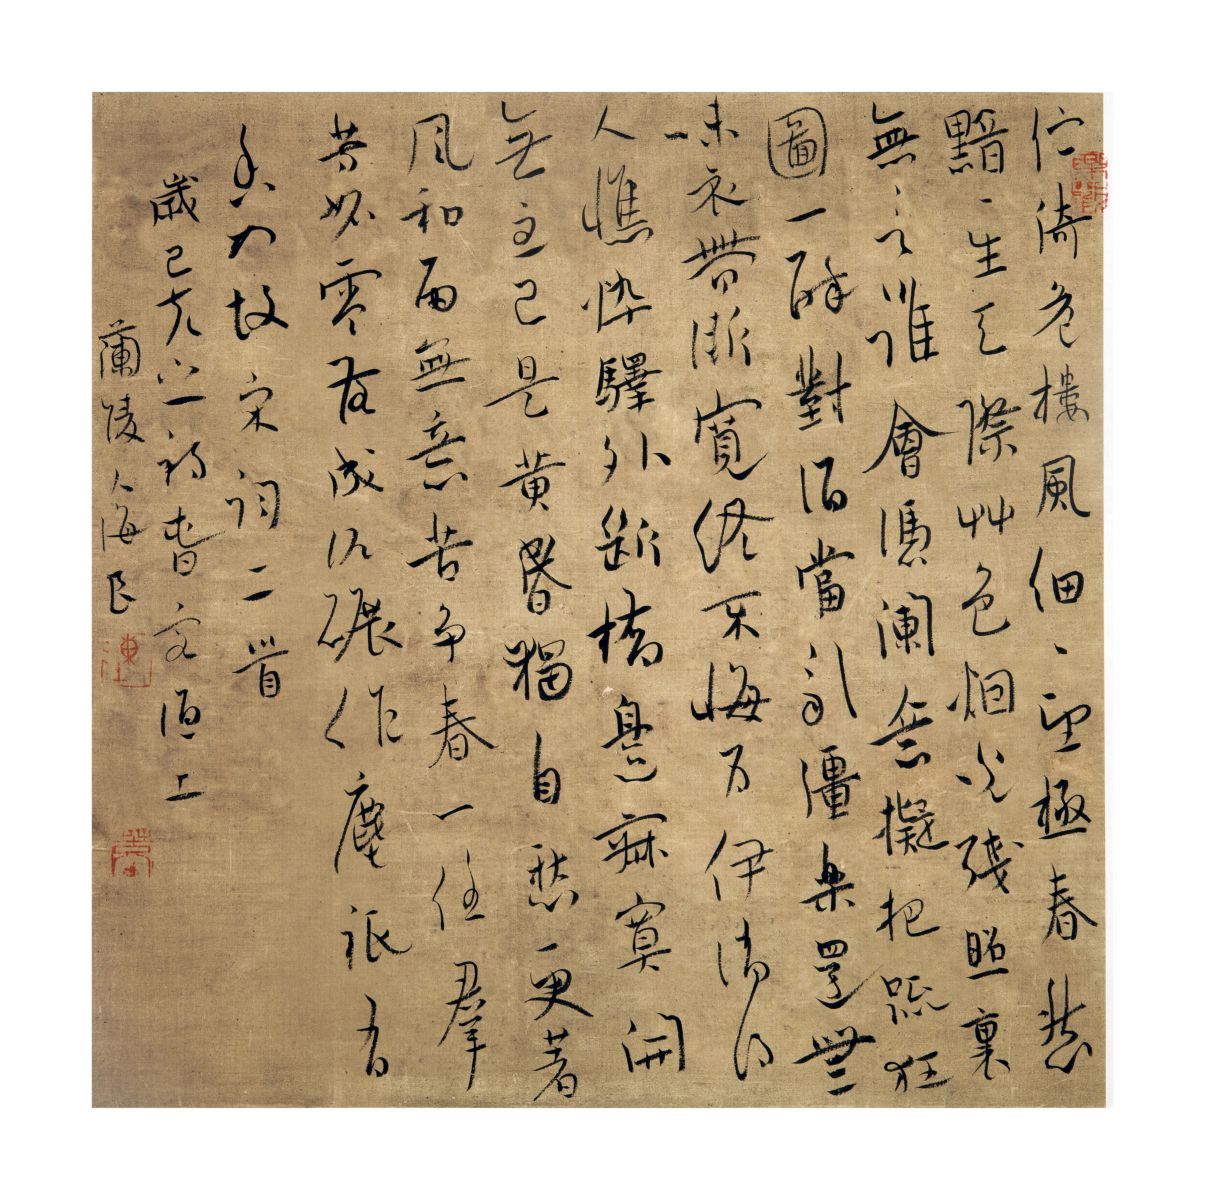 伫倚危樓風細〻望極春愁
黯〻生天際艸色烟光殘照裏
無言誰會憑闌意擬把疏狂
圖一醉對酒當歌彊樂還無
味衣帶漸寬終不悔为伊消得
人憔悴驛外斷橋邊寂寞開
無主已是黄昏獨自愁更著
風和雨無意苦争春一任羣
芳妒零落成泥碾作塵祇有
香如故宋詞二首
歲己亥六一
蘭陵人海良